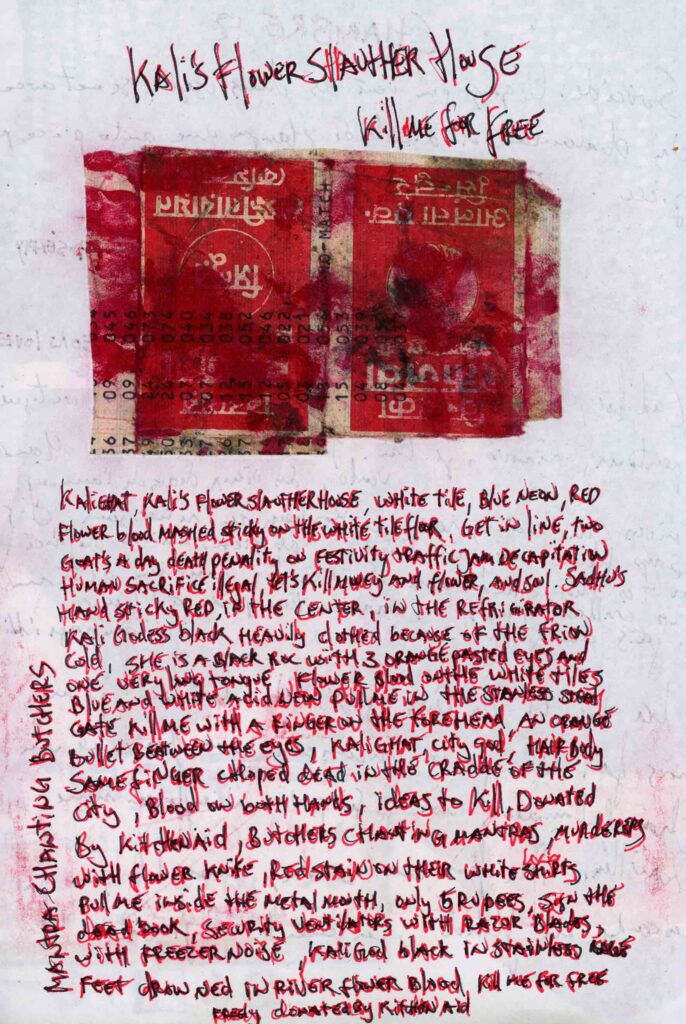 KALI'S FLOWER SLAUTHER HOUSE
Kill ME FOR FREE
MATCH
KALIGHAT, KALI'S FLOWER SLAUTHERHOUSE, WHITE TILE, BLUE NEON, RED
FLOWER blood MASHED STICKY ON THE WHITE TILE FLOOR. GET IN LINE, TWO
GOAT'S A DAY DEATH PENALITY ON FESTIVITY TRAFFIC JAM DECAPITATION
HUMAN SACRIFICE ILLEGAL, LET'S KILL MONEY AND FLOWER, AND SOUL. SADHU'S
HAND STICKY RED, IN THE CENTER, IN THE REFRIGIRATOR
KALI GODESS black HEAVILY CLOTHED BECAUSE OF THE FRION
COLD, SHE IS A BLACK ROC WITH 3 ORANGE PASTED EYES AND
ONE VERY LONG TONGUE, FLOWER BLOOD ON THE WHITE TILES
BLUE AND WHITE ACID NEON PULL ME IN THE STANLESS
GATE KILL ME WITH A FINGER ON THE FOREHEAD, AN ORANGE
BULLET BEATWEEN THE EYES, KALIGHAT, CITY GOD, HAIR BODY
SAME FINGER CHOPED DEAD IN THE CRADLE OF THE
CITY, BLOOD ON BOTH HANDS, IDEAS TO KILL, DONATED
BY KITCHEN AID, BUTCHERS CHANTING MANTRAS, MURDERERS
WITH FLOWER KNIFE, RED STAIN ON THEIR WHITE SHIRTS
PULL ME INSIDE THE METAL MOUTH, ONLY 5 RUPEES, SIGN THE
DEAD BOOK, SECURITY VENTILATORS WITH RAZOR BLADES,
WITH FREEZER NOISE, KALI GOD black IN STAINLESS
FEET DROWNED IN RIVER FLOWER BLOOD, KILL ME FOR FREE
FREELY DONATED BY KITCHEN AID
MANTRA-CHANTING BUTCHERS